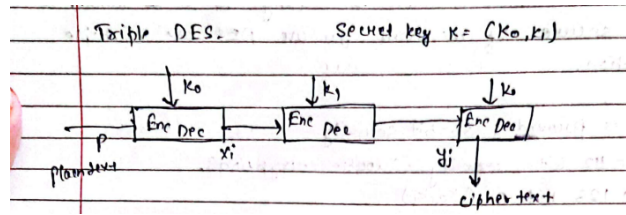 Triple DES. Secret key K = (K₀, K₁)
K₀ K₁ K₀
Enc Dec Enc Dec Enc Dec
P xi yj
Plaintext
cipher text